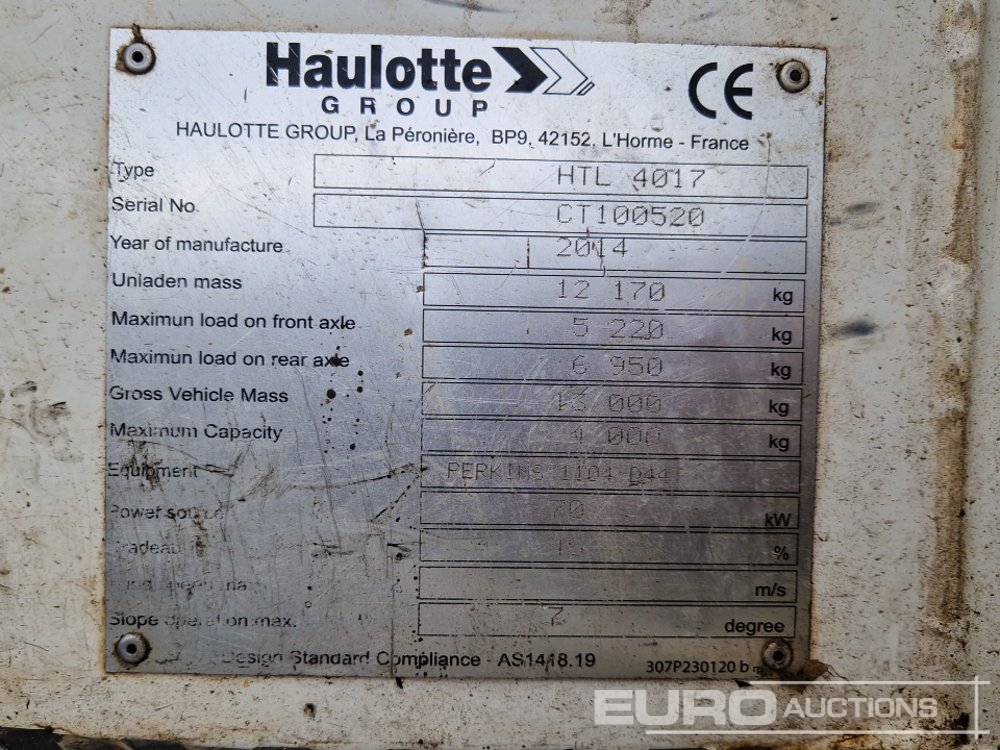 Haulotte
GROUP
CE
HAULOTTE GROUP, La Péronière, BP9, 42152, L'Horme - France
Type HTL 4017
Serial No CT100520
Year of manufacture 2014
Unladen mass 12 170 kg
Maximun load on front axle 5 220 kg
Maximun load on rear axle 6 950 kg
Gross Vehicle Mass 13 000 kg
Maximum Capacity 4 000 kg
Equipment PERKINS 1104 D44T
Power source 70 kW
%
m/s
Slope operation max. degree
Design Standard Compliance - AS1418.19
307P230120 b
EURO AUCTIONS